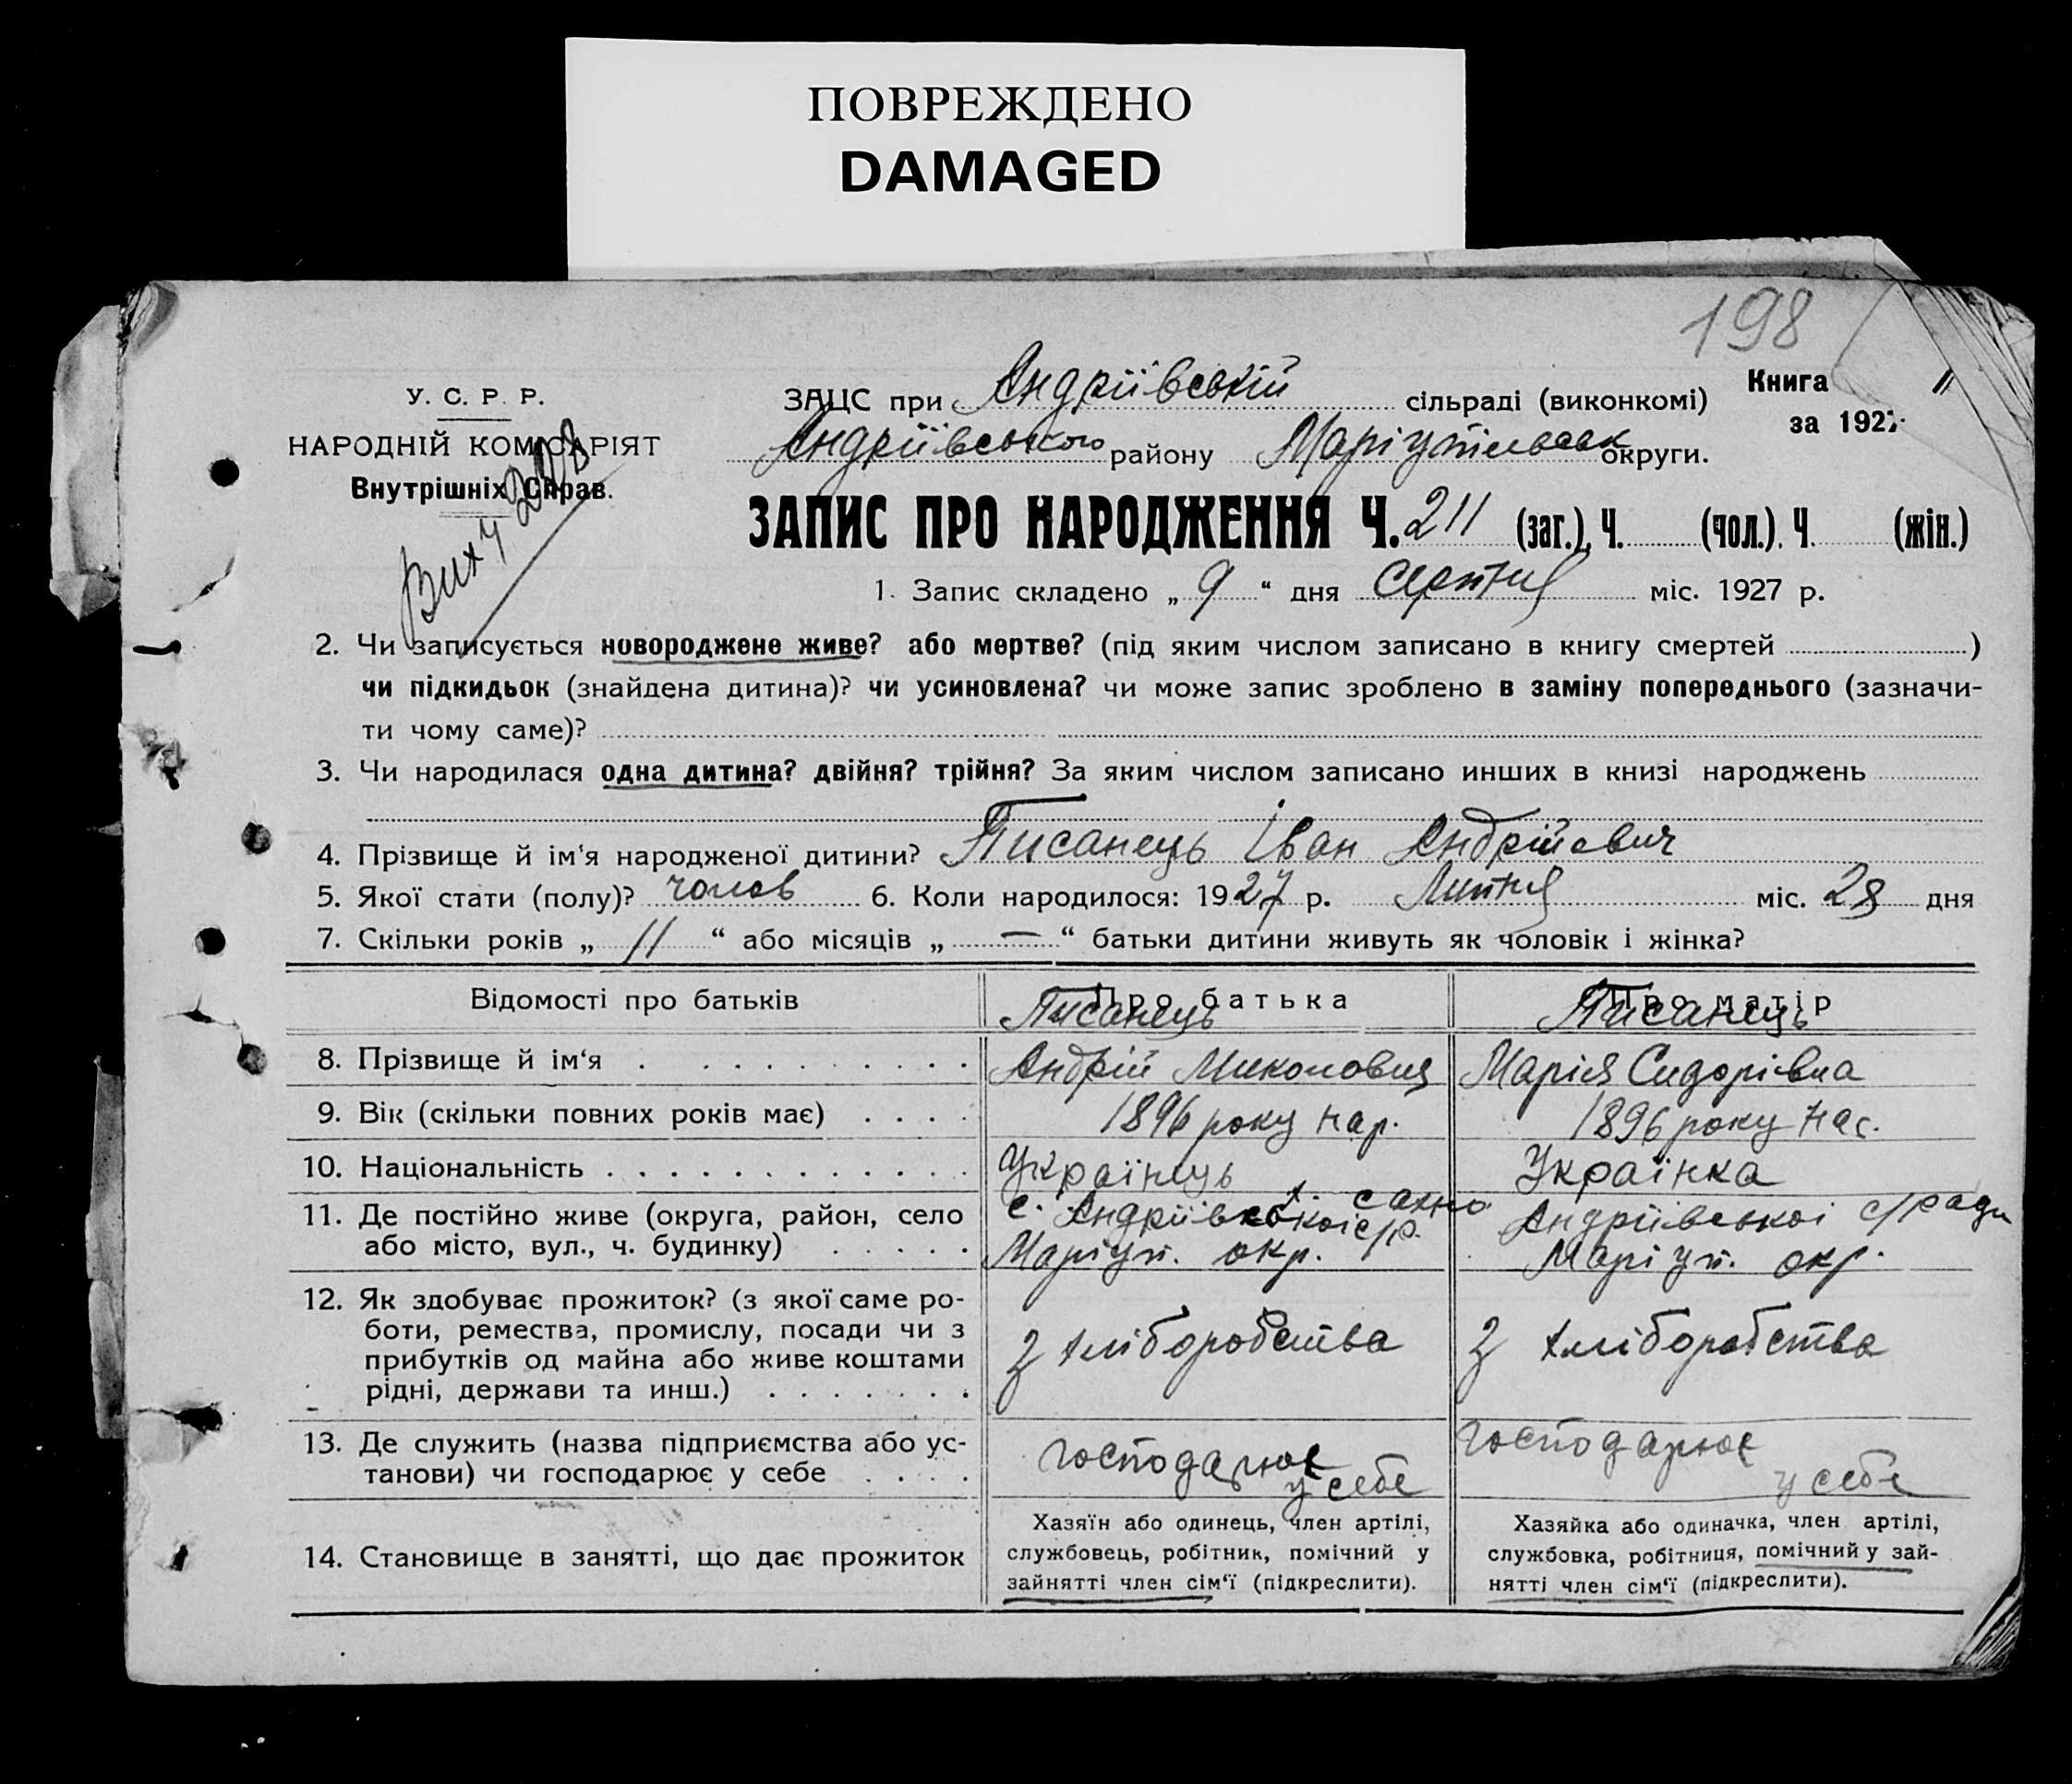 ПОВРЕЖДЕНО
DAMAGED
198
У. С. Р. Р.
НАРОДНІЙ КОМІСАРІЯТ
Внутрішніх Справ.
ЗАЦС при Андріївській сільраді (виконкомі)
Книга "
за 1927
Андріївського району Маріупільськ округи.
ЗАПИС ПРО НАРОДЖЕННЯ Ч. 211 (заг.), Ч. (чол.). Ч (жін.)
1. Запис складено „ 9 “ дня серпня міс. 1927 р.
2. Чи записується новороджене живе? або мертве? (під яким числом записано в книгу смертей )
чи підкидьок (знайдена дитина)? чи усиновлена? чи може запис зроблено в заміну попереднього (зазначи-
ти чому саме)?
3. Чи народилася одна дитина? двійня? трійня? За яким числом записано инших в книзі народжень
4. Прізвище й ім'я народженої дитини? Писанець Іван Андрійович
5. Якої стати (полу)? чолов 6. Коли народилося: 1927 р. Липня міс. 28 дня
7. Скільки років „ 11 “ або місяців „ — “ батьки дитини живуть як чоловік і жінка?
Відомості про батьків Про батька Про матір
Писанець Писанець
8. Прізвище й ім‘я Андрій Миколович Марія Сидорівна
9. Вік (скільки повних років має) 1896 року нар. 1896 року нас.
10. Національність Українець Українка
11. Де постійно живе (округа, район, село
або місто, вул., ч. будинку)
с. Андріївської с/р.
Маріуп. окр.
Андріївської с/ради
Маріуп. окр.
12. Як здобуває прожиток? (з якої саме ро-
боти, ремества, промислу, посади чи з
прибутків од майна або живе коштами
рідні, держави та инш.)
З хліборобства
З хліборобства
13. Де служить (назва підприємства або ус-
танови) чи господарює у себе
господарює
у себе
господарює
у себе
14. Становище в занятті, що дає прожиток
Хазяїн або одинець, член артілі,
службовець, робітник, помічний у
зайнятті член сім‘ї (підкреслити).
Хазяйка або одиначка, член артілі,
службовка, робітниця, помічний у зай-
нятті член сім‘ї (підкреслити).